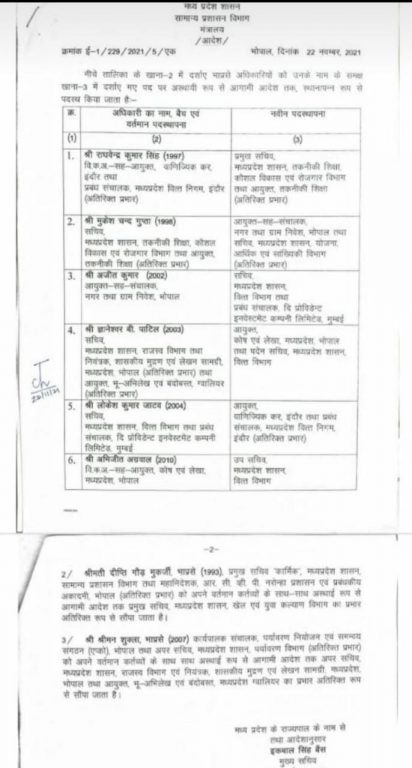 मध्य प्रदेश शासन
सामान्य प्रशासन विभाग
मंत्रालय
/आदेश/
क्रमांक ई-1/229/2021/5/एक
भोपाल, दिनांक 22 नवम्बर, 2021
नीचे तालिका के खाना-2 में दर्शाए भाप्रसे अधिकारियों को उनके नाम के समक्ष
खाना-3 में दर्शाए गए पद पर अस्थायी रूप से आगामी आदेश तक, स्थानापन्न रूप से
पदस्थ किया जाता है:-
क्र.
अधिकारी का नाम, बैच एवं
वर्तमान पदस्थापना
नवीन पदस्थापना
(1)
(2)
(3)
1.
श्री राघवेन्द्र कुमार सिंह (1997)
वि.क.अ.-सह-आयुक्त, वाणिज्यिक कर,
इंदौर तथा
प्रबंध संचालक, मध्यप्रदेश वित्त निगम, इंदौर
(अतिरिक्त प्रभार)
प्रमुख सचिव,
मध्यप्रदेश शासन, तकनीकी शिक्षा,
कौशल विकास एवं रोजगार विभाग
तथा आयुक्त, तकनीकी शिक्षा
(अतिरिक्त प्रभार)
2.
श्री मुकेश चन्द गुप्ता (1998)
सचिव,
मध्यप्रदेश शासन, तकनीकी शिक्षा, कौशल
विकास एवं रोजगार विभाग तथा आयुक्त,
तकनीकी शिक्षा (अतिरिक्त प्रभार)
आयुक्त-सह-संचालक,
नगर तथा ग्राम निवेश, भोपाल तथा
सचिव, मध्यप्रदेश शासन, योजना,
आर्थिक एवं सांख्यिकी विभाग
(अतिरिक्त प्रभार)
3.
श्री अजीत कुमार (2002)
आयुक्त-सह-संचालक,
नगर तथा ग्राम निवेश, भोपाल
सचिव,
मध्यप्रदेश शासन,
वित्त विभाग तथा
प्रबंध संचालक, दि प्रोविडेंट
इनवेस्टमेंट कम्पनी लिमिटेड, मुम्बई
4.
श्री ज्ञानेश्वर बी. पाटिल (2003)
सचिव,
मध्यप्रदेश शासन, राजस्व विभाग तथा
नियंत्रक, शासकीय मुद्रण एवं लेखन सामग्री,
मध्यप्रदेश, भोपाल (अतिरिक्त प्रभार) तथा
आयुक्त, भू-अभिलेख एवं बंदोबस्त, ग्वालियर
(अतिरिक्त प्रभार)
आयुक्त,
कोष एवं लेखा, मध्यप्रदेश, भोपाल
तथा पदेन सचिव, मध्यप्रदेश शासन,
वित्त विभाग
5.
श्री लोकेश कुमार जाटव (2004)
सचिव,
मध्यप्रदेश शासन, वित्त विभाग तथा प्रबंध
संचालक, दि प्रोविडेंट इनवेस्टमेंट कम्पनी
लिमिटेड, मुम्बई
आयुक्त,
वाणिज्यिक कर, इंदौर तथा प्रबंध
संचालक, मध्यप्रदेश वित्त निगम,
इंदौर (अतिरिक्त प्रभार)
6.
श्री अभिजीत अग्रवाल (2010)
वि.क.अ.-सह-आयुक्त, कोष एवं लेखा,
मध्यप्रदेश, भोपाल
उप सचिव,
मध्यप्रदेश शासन,
वित्त विभाग
-2-
2/ श्रीमती दीप्ति गौड़ मुकर्जी, भाप्रसे (1993), प्रमुख सचिव 'कार्मिक', मध्यप्रदेश शासन,
सामान्य प्रशासन विभाग तथा महानिदेशक, आर. सी. व्ही. पी. नरोन्हा प्रशासन एवं प्रबंधकीय
अकादमी, भोपाल (अतिरिक्त प्रभार) को अपने वर्तमान कर्तव्यों के साथ-साथ अस्थाई रूप से
आगामी आदेश तक प्रमुख सचिव, मध्यप्रदेश शासन, खेल एवं युवा कल्याण विभाग का प्रभार
अतिरिक्त रूप से सौंपा जाता है।
3/ श्री श्रीमन शुक्ला, भाप्रसे (2007) कार्यपालक संचालक, पर्यावरण नियोजन एवं समन्वय
संगठन (एप्को), भोपाल तथा अपर सचिव, मध्यप्रदेश शासन, पर्यावरण विभाग (अतिरिक्त प्रभार)
को अपने वर्तमान कर्तव्यों के साथ साथ अस्थाई रूप से आगामी आदेश तक अपर सचिव,
मध्यप्रदेश शासन, राजस्व विभाग एवं नियंत्रक, शासकीय मुद्रण एवं लेखन सामग्री, मध्यप्रदेश,
भोपाल तथा आयुक्त, भू-अभिलेख एवं बंदोबस्त, मध्यप्रदेश ग्वालियर का प्रभार अतिरिक्त रूप
से सौंपा जाता है।
मध्य प्रदेश के राज्यपाल के नाम से
तथा आदेशानुसार
इकबाल सिंह बैंस
मुख्य सचिव